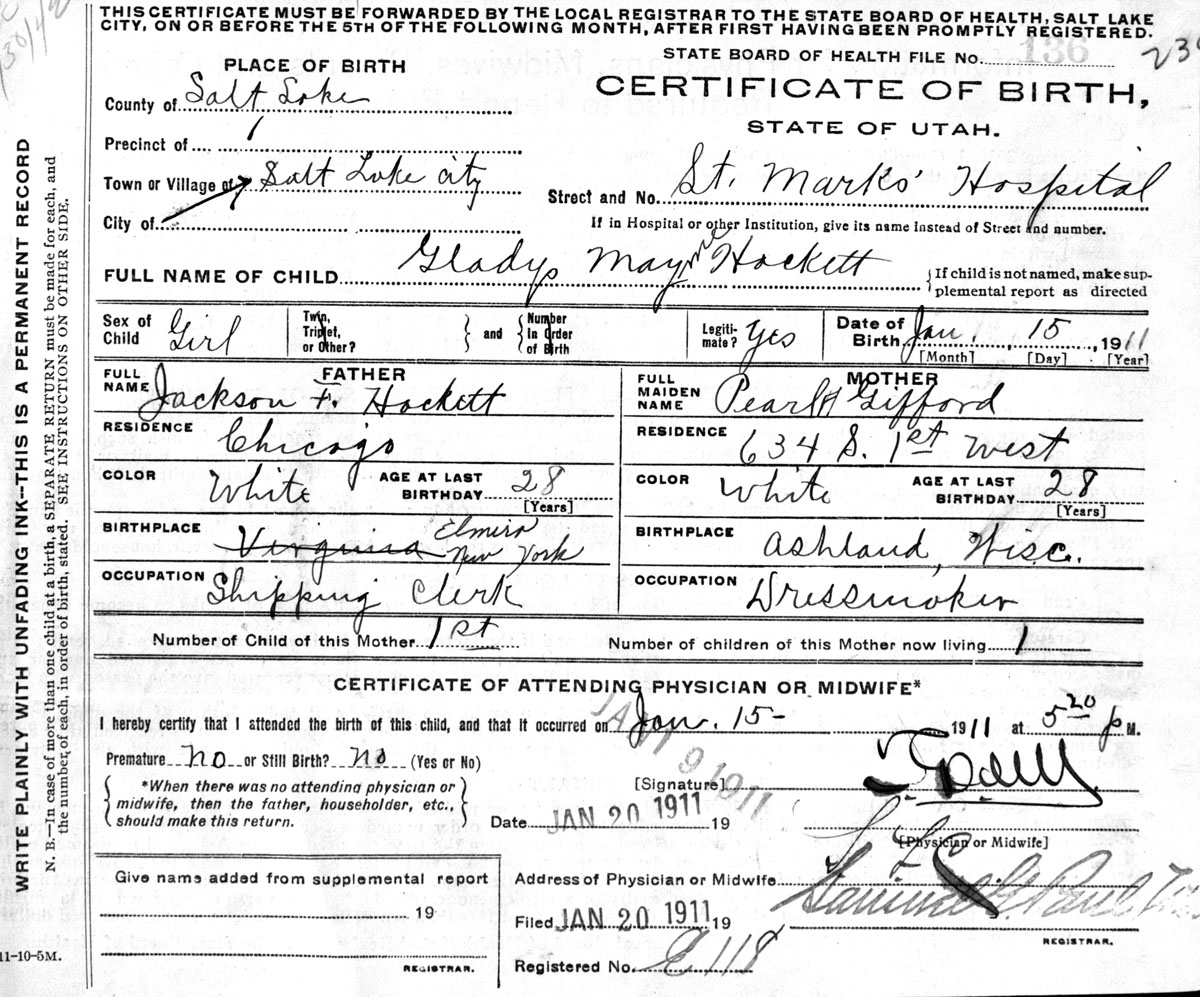 THIS CERTIFICATE MUST BE FORWARDED BY THE LOCAL REGISTRAR TO THE STATE BOARD OF HEALTH, SALT LAKE
CITY, ON OR BEFORE THE 5TH OF THE FOLLOWING MONTH, AFTER FIRST HAVING BEEN PROMPTLY REGISTERED.
STATE BOARD OF HEALTH FILE No. 136
PLACE OF BIRTH
CERTIFICATE OF BIRTH,
STATE OF UTAH.
County of Salt Lake
Precinct of 1
Town or Village of Salt Lake city
City of
Street and No. St. Marks' Hospital
If in Hospital or other Institution, give its name instead of Street and number.
FULL NAME OF CHILD Gladys Mayme Hockett
If child is not named, make sup-
plemental report as directed
Sex of Child Girl
Twin, Triplet, or Other? and Number In Order of Birth
Legiti-mate? Yes
Date of Birth Jan. 15, 1911
[Month] [Day] [Year]
FATHER
FULL NAME Jackson F. Hockett
RESIDENCE Chicago
COLOR White AGE AT LAST BIRTHDAY 28
[Years]
BIRTHPLACE Virginia Elmira New York
OCCUPATION Shipping Clerk
MOTHER
FULL MAIDEN NAME Pearl A Gifford
RESIDENCE 634 S. 1st West
COLOR White AGE AT LAST BIRTHDAY 28
[Years]
BIRTHPLACE Ashland, Wisc.
OCCUPATION Dressmaker
Number of Child of this Mother 1st Number of children of this Mother now living 1
CERTIFICATE OF ATTENDING PHYSICIAN OR MIDWIFE*
I hereby certify that I attended the birth of this child, and that it occurred on Jan. 15- 1911 at 5 20 p M.
JAN 19 1911
Premature No or Still Birth? No (Yes or No)
*When there was no attending physician or
midwife, then the father, householder, etc.,
should make this return.
[Signature]
Date JAN 20 1911 19
[Physician or Midwife]
Address of Physician or Midwife
Give name added from supplemental report
19
REGISTRAR.
Filed JAN 20 1911 19
REGISTRAR.
Registered No. 118
11-10-5M.
WRITE PLAINLY WITH UNFADING INK--THIS IS A PERMANENT RECORD
N. B.—In case of more than one child at a birth, a SEPARATE RETURN must be made for each, and
the number of each, in order of birth, stated. SEE INSTRUCTIONS ON OTHER SIDE.